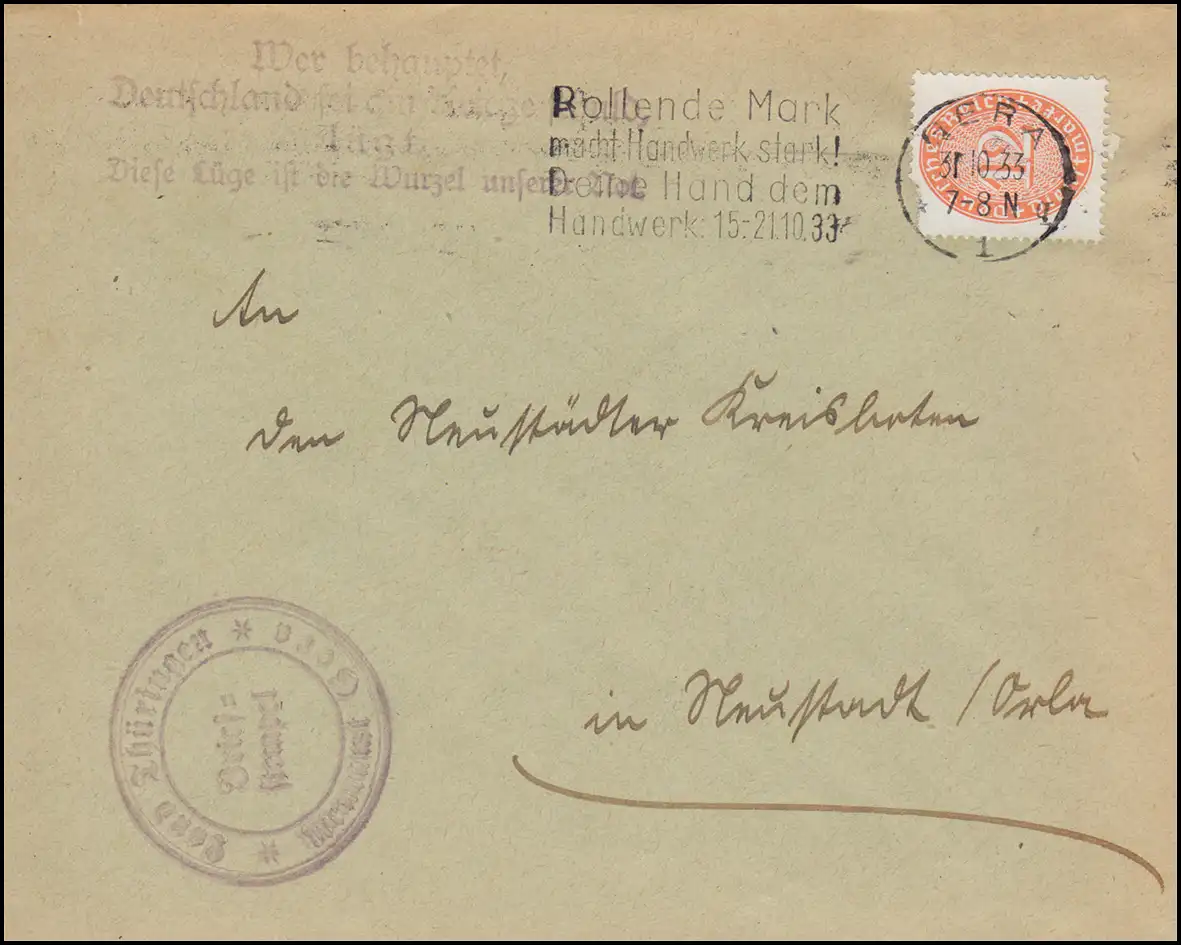 Wer behauptet,
Deutschland sei am Kriege schuld,
lügt.
Diese Lüge ist die Wurzel unserer Not.
Rollende Mark
macht Handwerk stark!
Deine Hand dem
Handwerk: 15.-21.10.33
GERA
31.10.33
7-8 N
1
Deutsches Reich
12
An
den Neustädter Kreisboten
in Neustadt /Orla
Land Thüringen * Gera *
Brief=
stempel